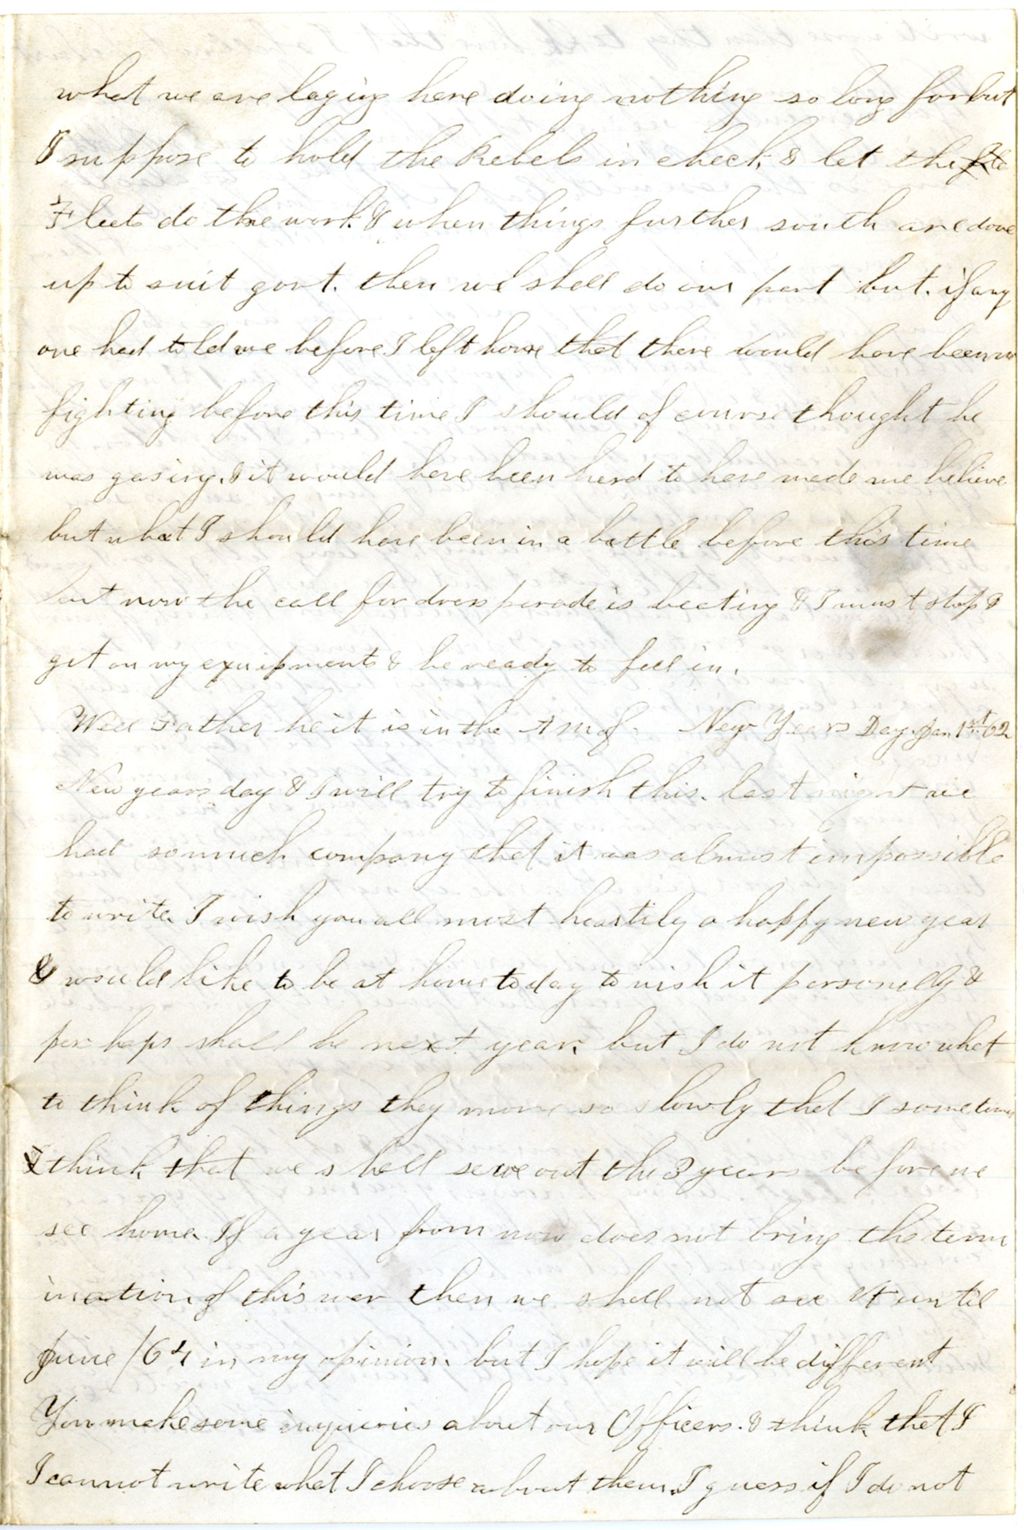 what we are laying here doing nothing so long for but
I suppose to hold the Rebels in check & let the
Fleets do the work & when things further south are done
up to suit govt. then we shall do our part but. if any
one had told me before I left home that there would have been no
fighting before this time I should of course thought he
was gasing, & it would have been hard to have made me believe
but what I should have been in a battle before this time
but now the call for dress parade is beating & I must stop &
get on my equipments & be ready to fall in.
Well Father he it is in the A m of. New Years Day, Jan 1st/62
New years day & I will try to finish this. last night we
had so much company that it was almost impossible
to write. I wish you all most heartily a happy new year
& would like to be at home today to wish it personally &
perhaps shall be next year. but I do not know what
to think of things they move so slowly that I sometimes
think that we shall serve out the 3 years before we
see home. If a year from now does not bring the term
ination of this war then we shall not see it until
June /64 in my opinion. but I hope it will be different
You make some inquiries about our Officers. & think that I
I cannot write what I choose about them. I guess if I do not